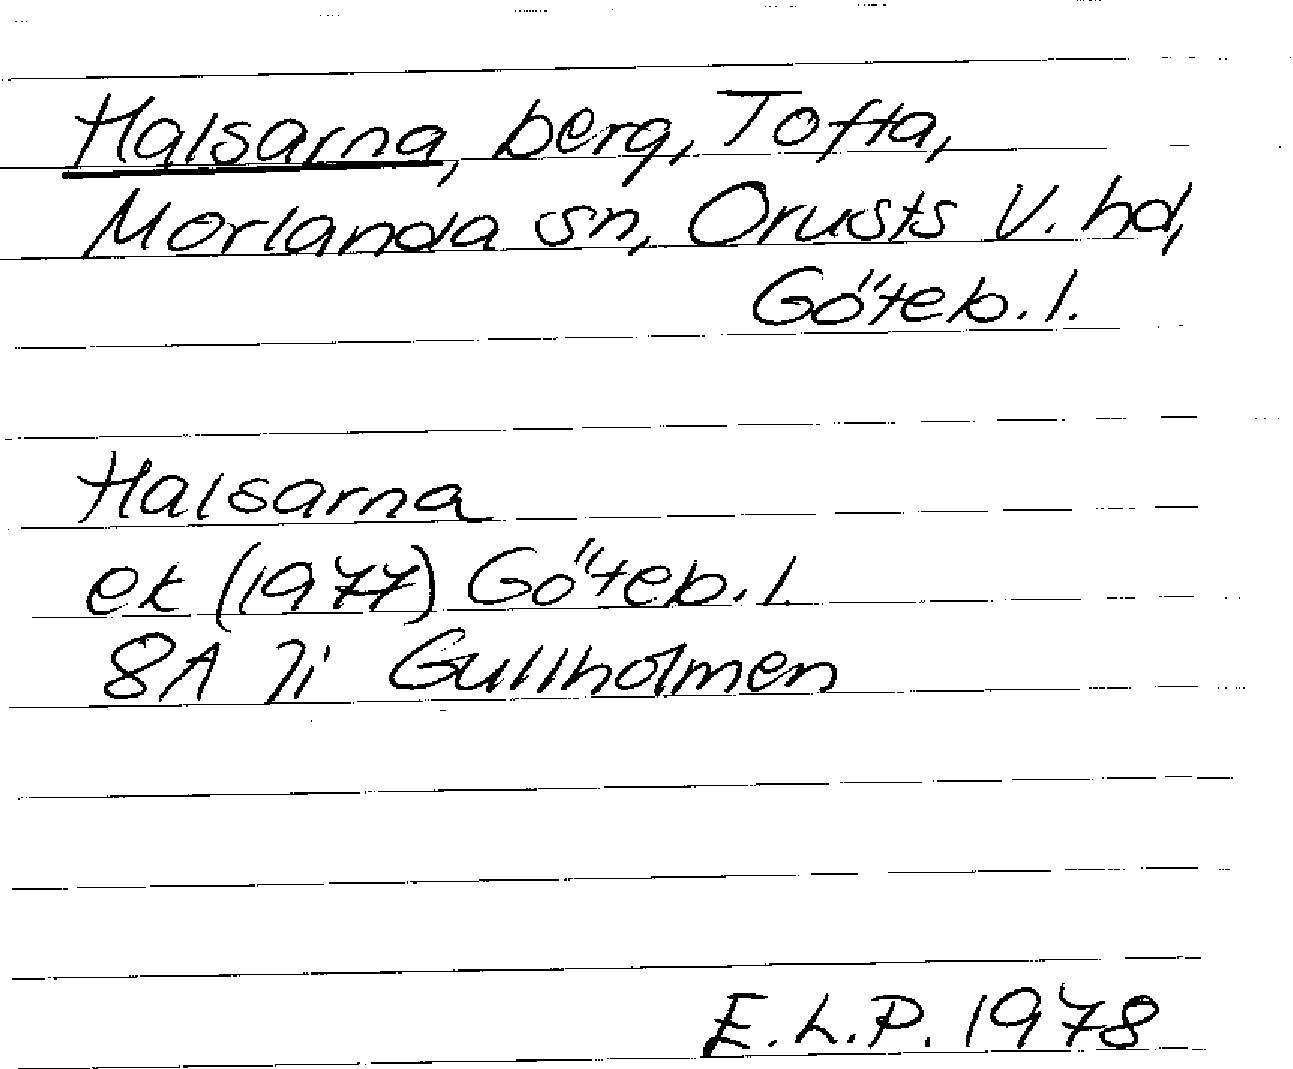 Halsarna, berg, Tofta,
Morlanda sn, Orusts V. hd,
Göteb. l.
Halsarna
ek (1977) Göteb. l.
8A 7i Gullholmen
E.L.P. 1978